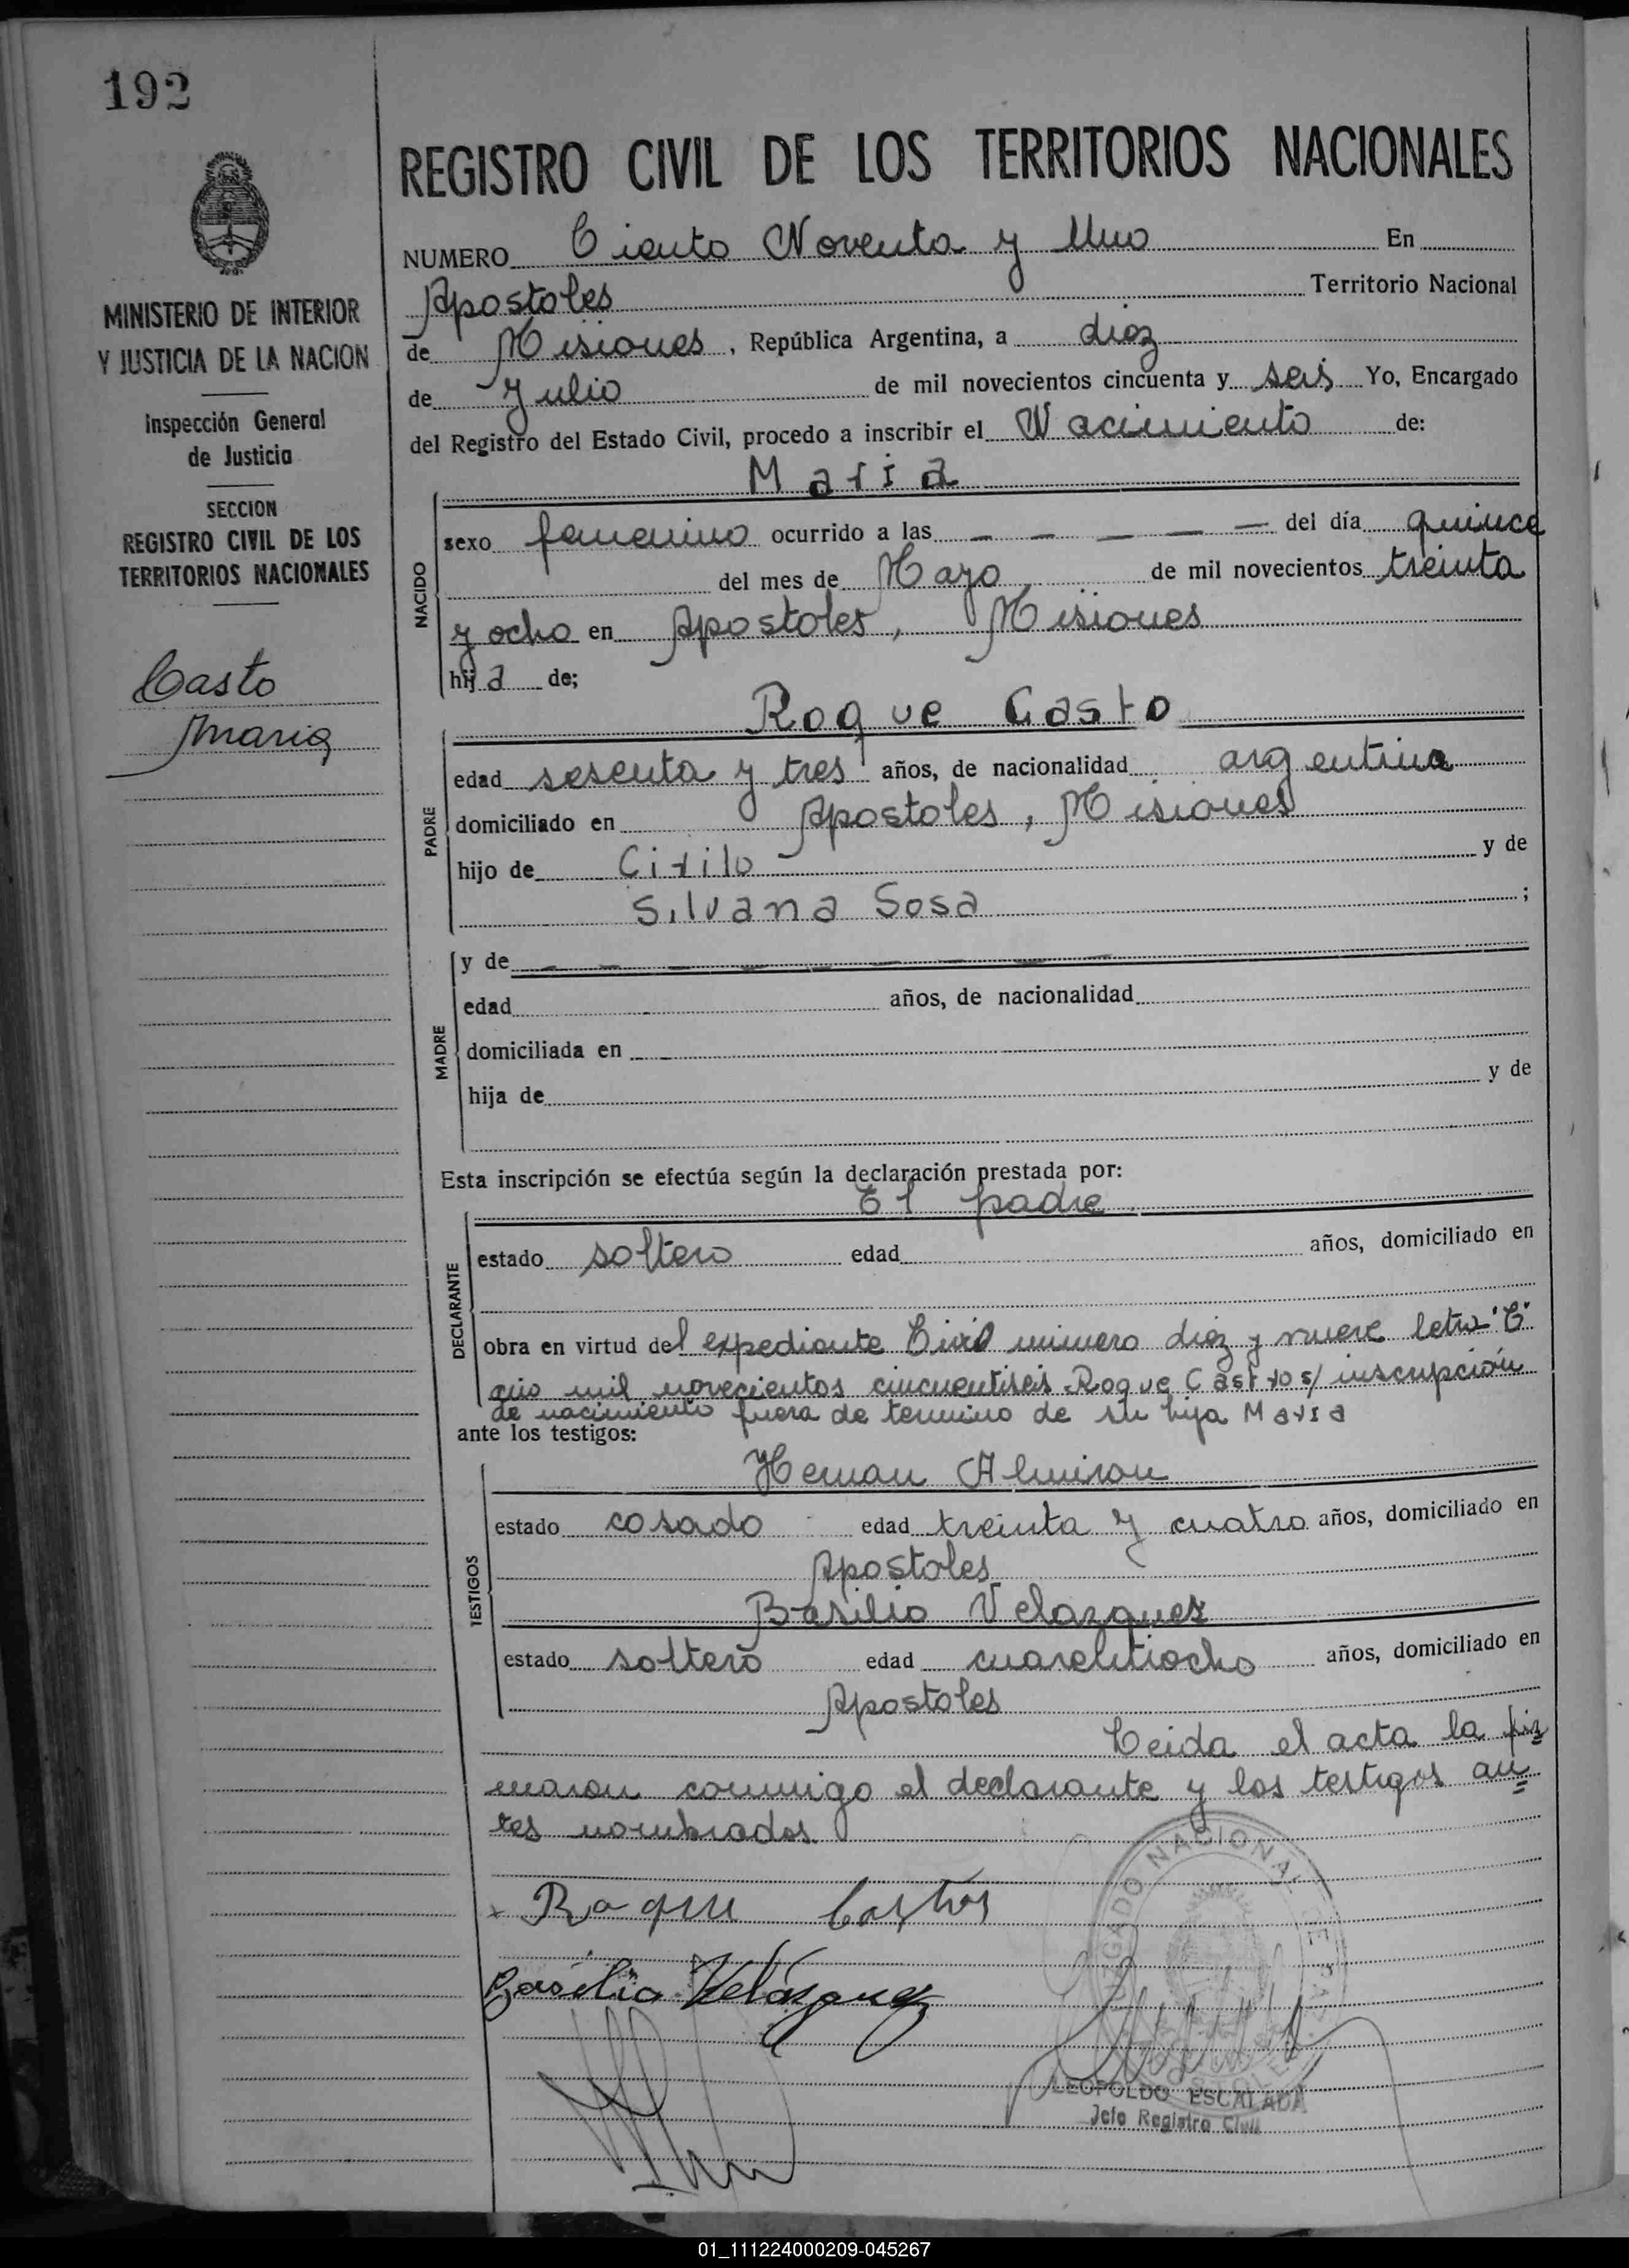 192
MINISTERIO DE INTERIOR
Y JUSTICIA DE LA NACION
Inspección General
de Justicia
SECCION
REGISTRO CIVIL DE LOS
TERRITORIOS NACIONALES
Casto
Maria
REGISTRO CIVIL DE LOS TERRITORIOS NACIONALES
NUMERO Ciento Noventa y Uno En
Apostoles Territorio Nacional
de Misiones, República Argentina, a diez
de Julio de mil novecientos cincuenta y seis Yo, Encargado
del Registro del Estado Civil, procedo a inscribir el Nacimiento de:
Maria
NACIDO
sexo femenino ocurrido a las — — — — — del día quince
del mes de Mayo de mil novecientos treinta
y ocho en Apostoles, Misiones
hija de;
Roque Casto
PADRE
edad sesenta y tres años, de nacionalidad argentina
domiciliado en Apostoles, Misiones
hijo de Cirilo y de
Silvana Sosa ;
MADRE
y de — — — — — — — —
edad años, de nacionalidad
domiciliada en
hija de y de
Esta inscripción se efectúa según la declaración prestada por:
El padre
DECLARANTE
estado soltero edad años, domiciliado en
obra en virtud del expediente Civil número diez y nueve letra "C"
año mil novecientos cincuentiseis Roque Castro s/ inscripción
de nacimiento fuera de termino de su hija Maria
ante los testigos:
TESTIGOS
Hernan Almiron
estado casado edad treinta y cuatro años, domiciliado en
Apostoles
Basilio Velazquez
estado soltero edad cuarentiocho años, domiciliado en
Apostoles
Leida el acta la fir=
maron conmigo el declarante y los testigos an=
tes nombrados.
x Roque Castro
Basilio Velázquez
JUZGADO NACIONAL DE PAZ
LEOPOLDO ESCALADA
Jefe Registro Civil
01_111224000209-045267